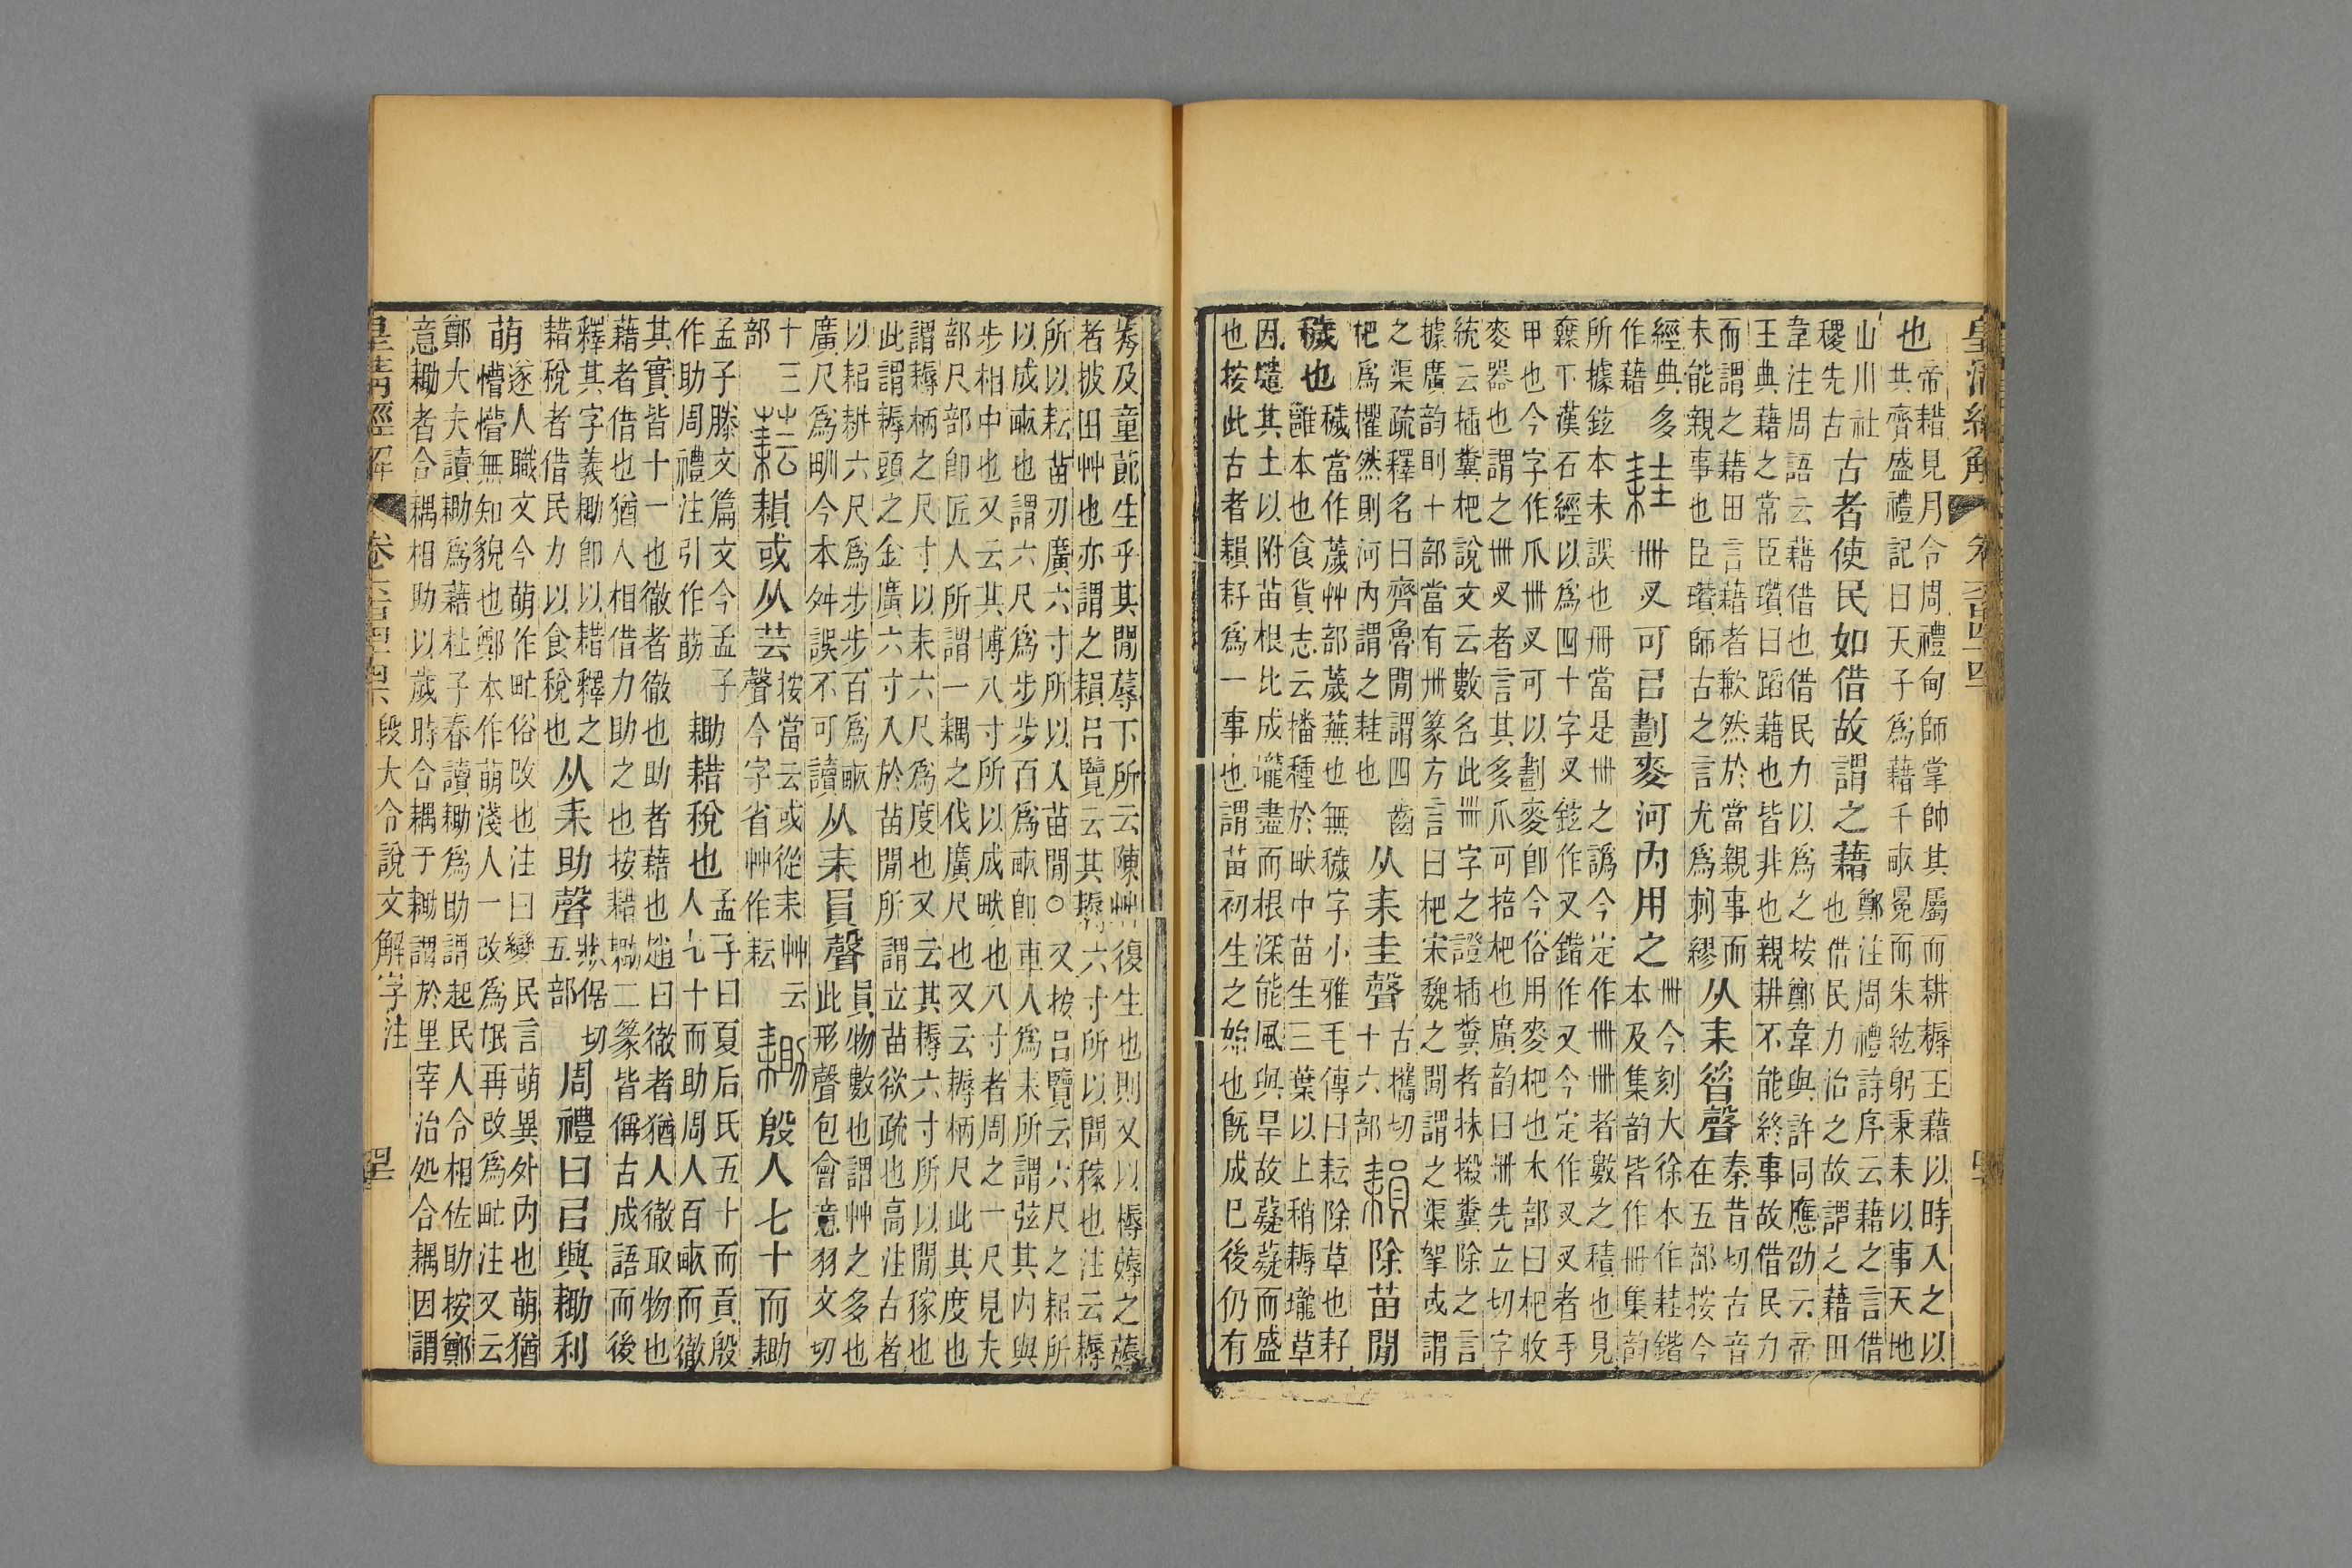 皇清經解
也帝耤見月令周禮甸師掌帥其屬而耕耨王藉以時入之以
共齊盛禮記曰天子爲藉千畝冕而朱紘躬秉耒以事天地
山川社
稷先古
古者使民如借故謂之藉
鄭注周禮詩序云藉之言借
也借民力治之故謂之藉田
韋注周語云藉借也借民力以爲之按鄭韋與許同應劭云帝
王典藉之常臣瓚曰蹈藉也皆非也親耕不能終事故借民力
而謂之藉田言藉者歉然於當親事而
未能親事也臣瓚師古之言尤爲剌繆
从耒㫺聲
秦昔切古音
在五部按今
經典多
作藉
卌叉可㠯劃麥河内用之
卌今刻大徐本作 鍇
本及集韵皆作冊集韵
所據鉉本未誤也冊當是卌之譌今定作卌卌者數之積也見
下漢石經以爲四十字叉鉉作叉鍇作叉今定作叉叉者手
甲也今字作爪卌叉可以劃麥卽今俗用麥杷也木部曰杷收
麥器也謂之卌叉者言其多爪可掊杷也廣韵曰卌先立切字
統云插糞杷說文云數名此卌字之證插糞者 糞除之言
據廣韵則十部當有卌篆方言曰杷宋魏之閒謂之渠挐或謂
之渠疏釋名曰齊魯閒謂四齒
杷爲欋然則河內謂之 也
从耒圭聲
古攜切
十六部
除苗閒
穢也
穢當作薉艸部薉蕪也無穢字小雅毛傳曰耘除草也耔
雝本也食貨志云播種於甽中苗生三葉以上稍耨壠草
因壝其土以附苗根比成壠盡而根深能風與旱故薿薿而盛
也按此古者䎙耔爲一事也謂苗初生之始也旣成已後仍有
莠及童蓈生乎其閒蓐下所云陳艸復生也則又以槈薅之薅
者披田艸也亦謂之䎙呂覽云其耨六寸所以閒稼也注云耨
所以耘苗刃廣六寸所以入苗閒○又按呂覽云六尺之耜所
以成畝也謂六尺爲步步百爲畝卽車人爲耒所謂弦其內與
步相中也又云其博八寸所以成甽也八寸者周之一尺見夫
部尺部卽匠人所謂一耦之伐廣尺也又云耨柄尺此其度也
謂耨柄之尺寸以耒六尺爲度也又云其耨六寸所以閒稼也
此謂耨頭之金廣六寸入於苗閒所謂立苗欲疏也高注古者
以耜耕六尺爲步步百爲畝
廣尺爲甽今本舛誤不可讀
从耒員聲
員物數也謂艸之多也
此形聲包會意羽文切
十三
部
䎙或从芸
按當云或從耒艸云
聲今字省艸作耘
殷人七十而耡
孟子滕文篇文今孟子
作助周禮注引作莇
耡耤稅也
孟子曰夏后氏五十而貢殷
人七十而助周人百畝而徹
其實皆十一也徹者徹也助者藉也趙曰徹者猶人徹取物也
藉者借也猶人相借力助之也按耤耡二篆皆偁古成語而後
釋其字義耡卽以耤釋之
耤稅者借民力以食稅也
从耒助聲
牀倨切
五部
周禮曰㠯與耡利
萌
遂人職文今萌作甿俗改也注曰變民言萌異外內也萌猶
懵懵無知皃也鄭本作萌淺人一改爲氓再改爲甿注又云
鄭大夫讀耡爲藉杜子春讀耡爲助謂起民人令相佐助按鄭
意耡者合耦相助以歲時合耦于耡謂於里宰治処合耦因謂
皇清經解
段大令說文解字注